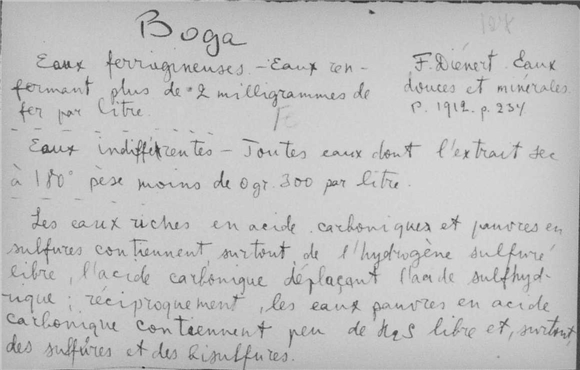 Boga
108
Eaux ferrugineuses - Eaux ren-
fermant plus de 2 milligrammes de
fer par litre.
F. Diénert. Eaux
douces et minérales
P. 1912. p. 234
Fe
Eaux indifférentes - Toutes eaux dont l'extrait sec
à 180° pèse moins de 0gr.300 par litre.
Les eaux riches en acide carbonique et pauvres en
sulfures contiennent surtout de l'hydrogène sulfuré
libre, l'acide carbonique déplaçant l'acide sulfhyd-
rique; réciproquement, les eaux pauvres en acide
carbonique contiennent peu de H2S libre et, surtout,
des sulfures et des bisulfures.